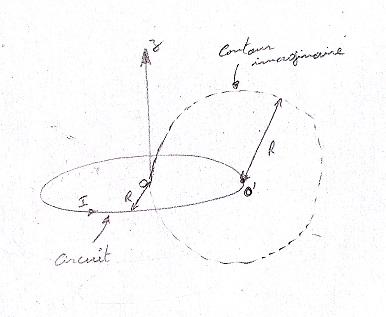 z
Contour
imaginaire
R
O
O'
R
I
Circuit